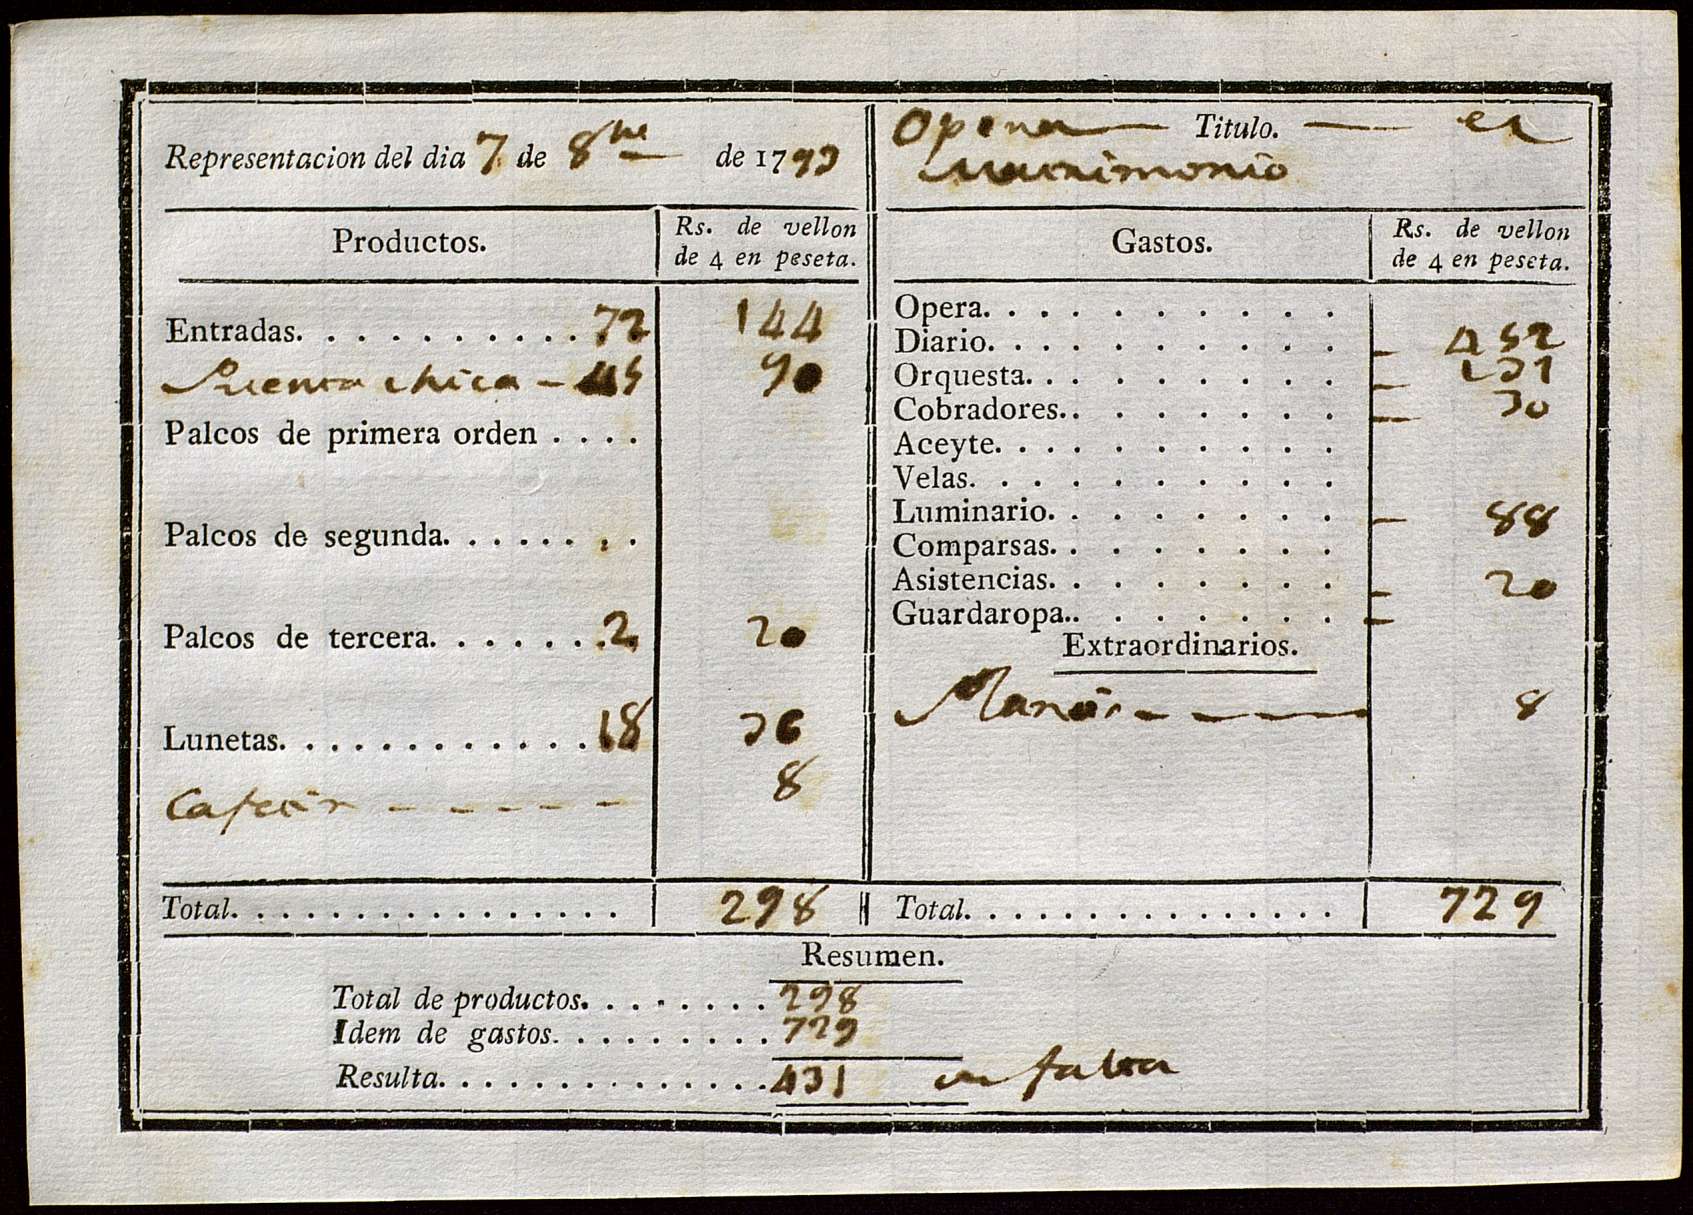 Representacion del dia 7 de 8bre de 1793
Opera — Titulo. — el
Matrimonio
Productos.
Rs. de vellon
de 4 en peseta.
Entradas. . . . . . . . . . 72 144
Puerta chica - 45 90
Palcos de primera orden . . . .
Palcos de segunda. . . . . . . .
Palcos de tercera. . . . . . . 2 20
Lunetas. . . . . . . . . . . . . 18 36
8
Total. . . . . . . . . . . . . . . . . 298
Gastos.
Rs. de vellon
de 4 en peseta.
Opera. . . . . . . . . .
Diario. . . . . . . . . . 452
Orquesta. . . . . . . . . 131
Cobradores. . . . . . . . 30
Aceyte. . . . . . . . . .
Velas. . . . . . . . . .
Luminario. . . . . . . . 88
Comparsas. . . . . . . .
Asistencias. . . . . . . . 20
Guardaropa. . . . . . . .
Extraordinarios.
8
Total. . . . . . . . . . . . . . . . 729
Resumen.
Total de productos. . . . . . . . 298
Idem de gastos. . . . . . . . . 729
Resulta. . . . . . . . . . . . . . 431 en falta